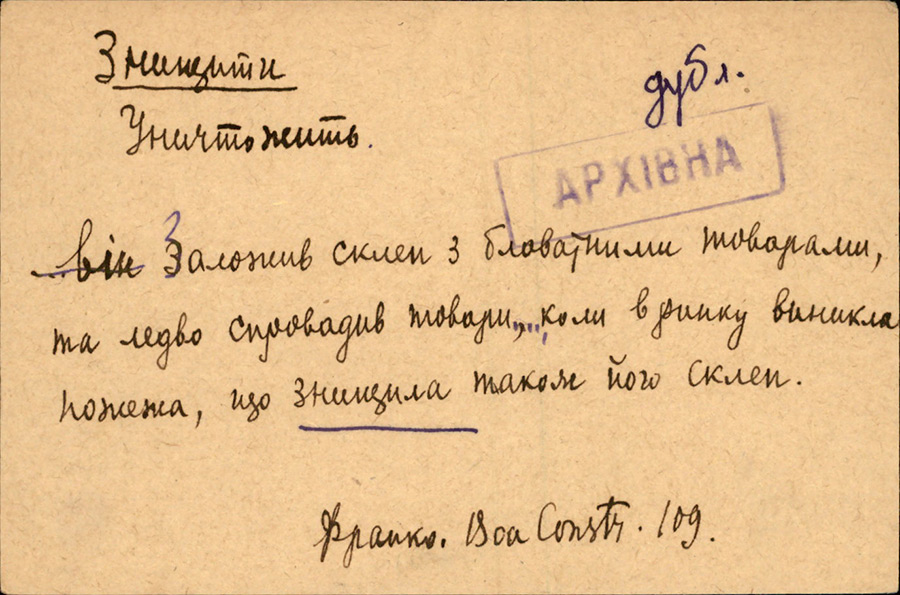 Знищити
дубл.
Уничтожить.
АРХІВНА
він Заложив склеп з блаватними товарами,
та ледво спровадив товари, коли в ринку виникла
пожежа, що знищила також його склеп.
Франко. Boa Constr. 109.